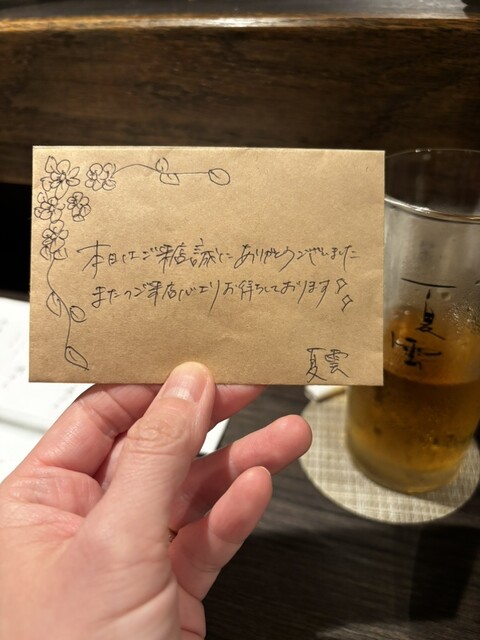 本日はご来店誠にありがとうございました
またのご来店心よりお待ちしております
夏雲
夏雲